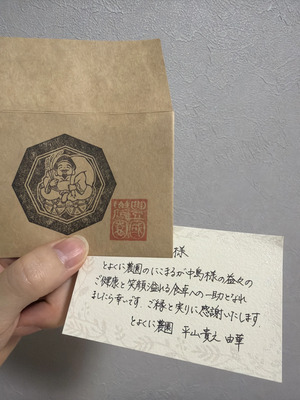 様
とよくに農園のにこまるが中島様の益々の
ご健康と笑顔溢れる食卓への一助となれ
ましたら幸いです。ご縁と実りに感謝いたします
とよくに農園 平山貴之 由華